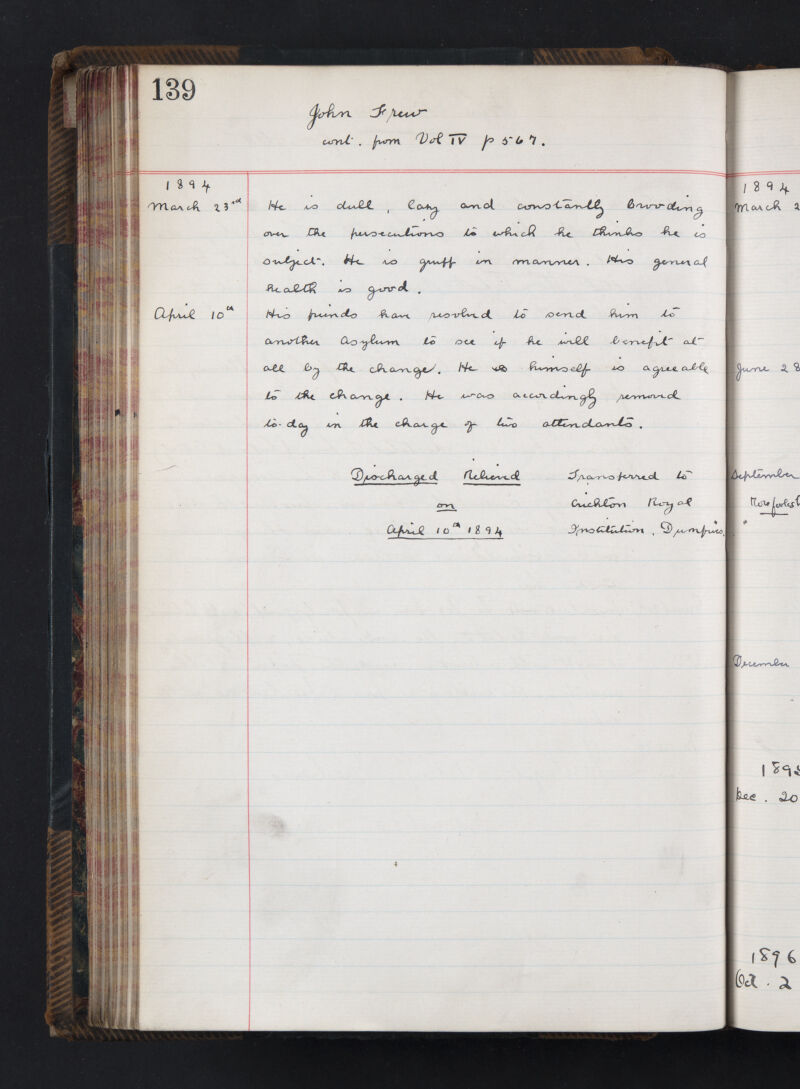 139
John Frew
cont. from Vol IV p 567.
1894
March 23rd He is dull, lazy and constantly brooding
over the persecutions to which he thinks he is
subject. He is gruff in manner. His general
health is good.
April 10th His friends have resolved to send him to
another Asylum to see if he will benefit at
all by the change. He himself is agreeable
to the change. He was accordingly removed
to-day in the charge of two attendants.
Discharged Relieved Transferred to
on Crichton Royal
April 10th 1894 Institution, Dumfries.
1894
March 2
June 28
September
December
Dec. 20
1896
Oct. 2